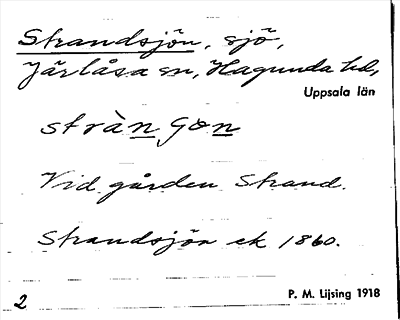 Strandsjön, sjö,
Järlåsa sn, Hagunda hd,
Uppsala län
stràn, gon
Vid gården Strand.
Strandsjön ek 1860.
P. M. Lijsing 1918
2